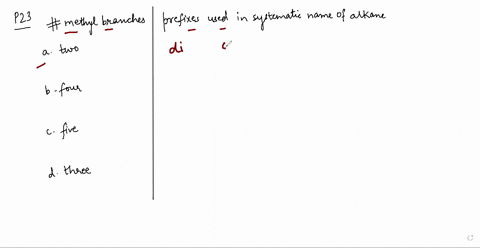 P23 # methyl branches prefixes used in systematic name of alkane
a. two di
b. four
c. five
d. three